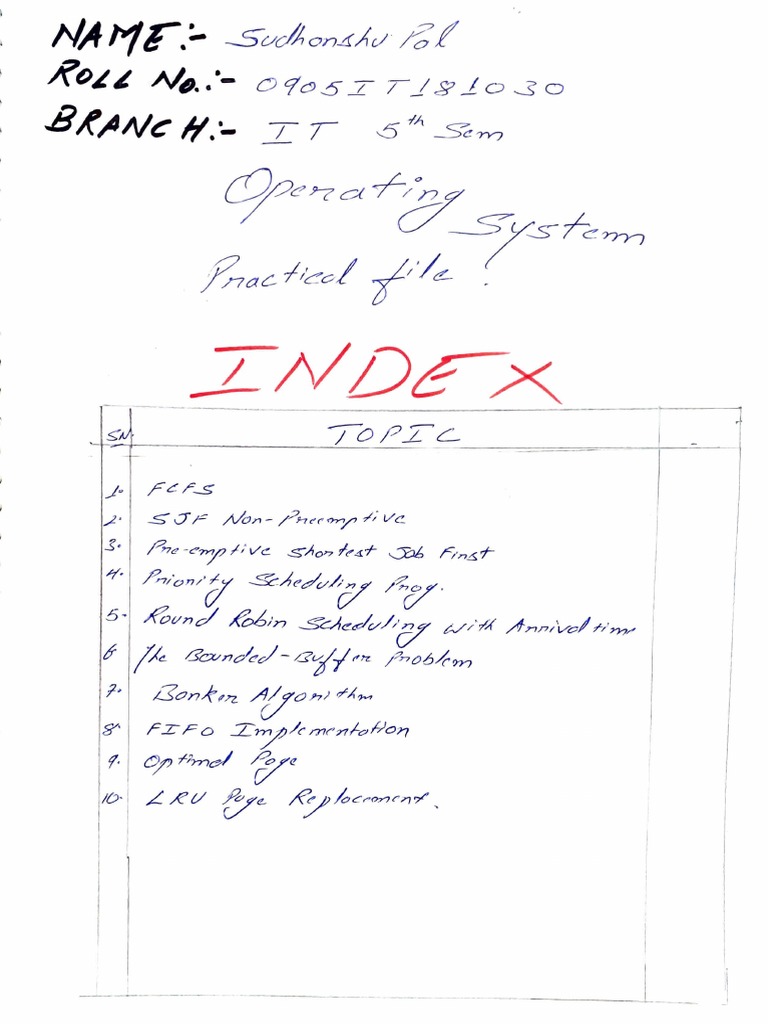 NAME:- Sudhanshu Pal
ROLL No.:- 0905IT181030
BRANCH:- IT 5th Sem
Operating
System
Practical file !
INDEX
SN. TOPIC
1. FCFS
2. SJF Non-Preemptive
3. Pre-emptive Shortest Job First
4. Priority Scheduling Prog.
5. Round Robin Scheduling with Arrival time
6 The Bounded-Buffer Problem
7. Banker Algorithm
8. FIFO Implementation
9. Optimal Page
10. LRU Page Replacement.